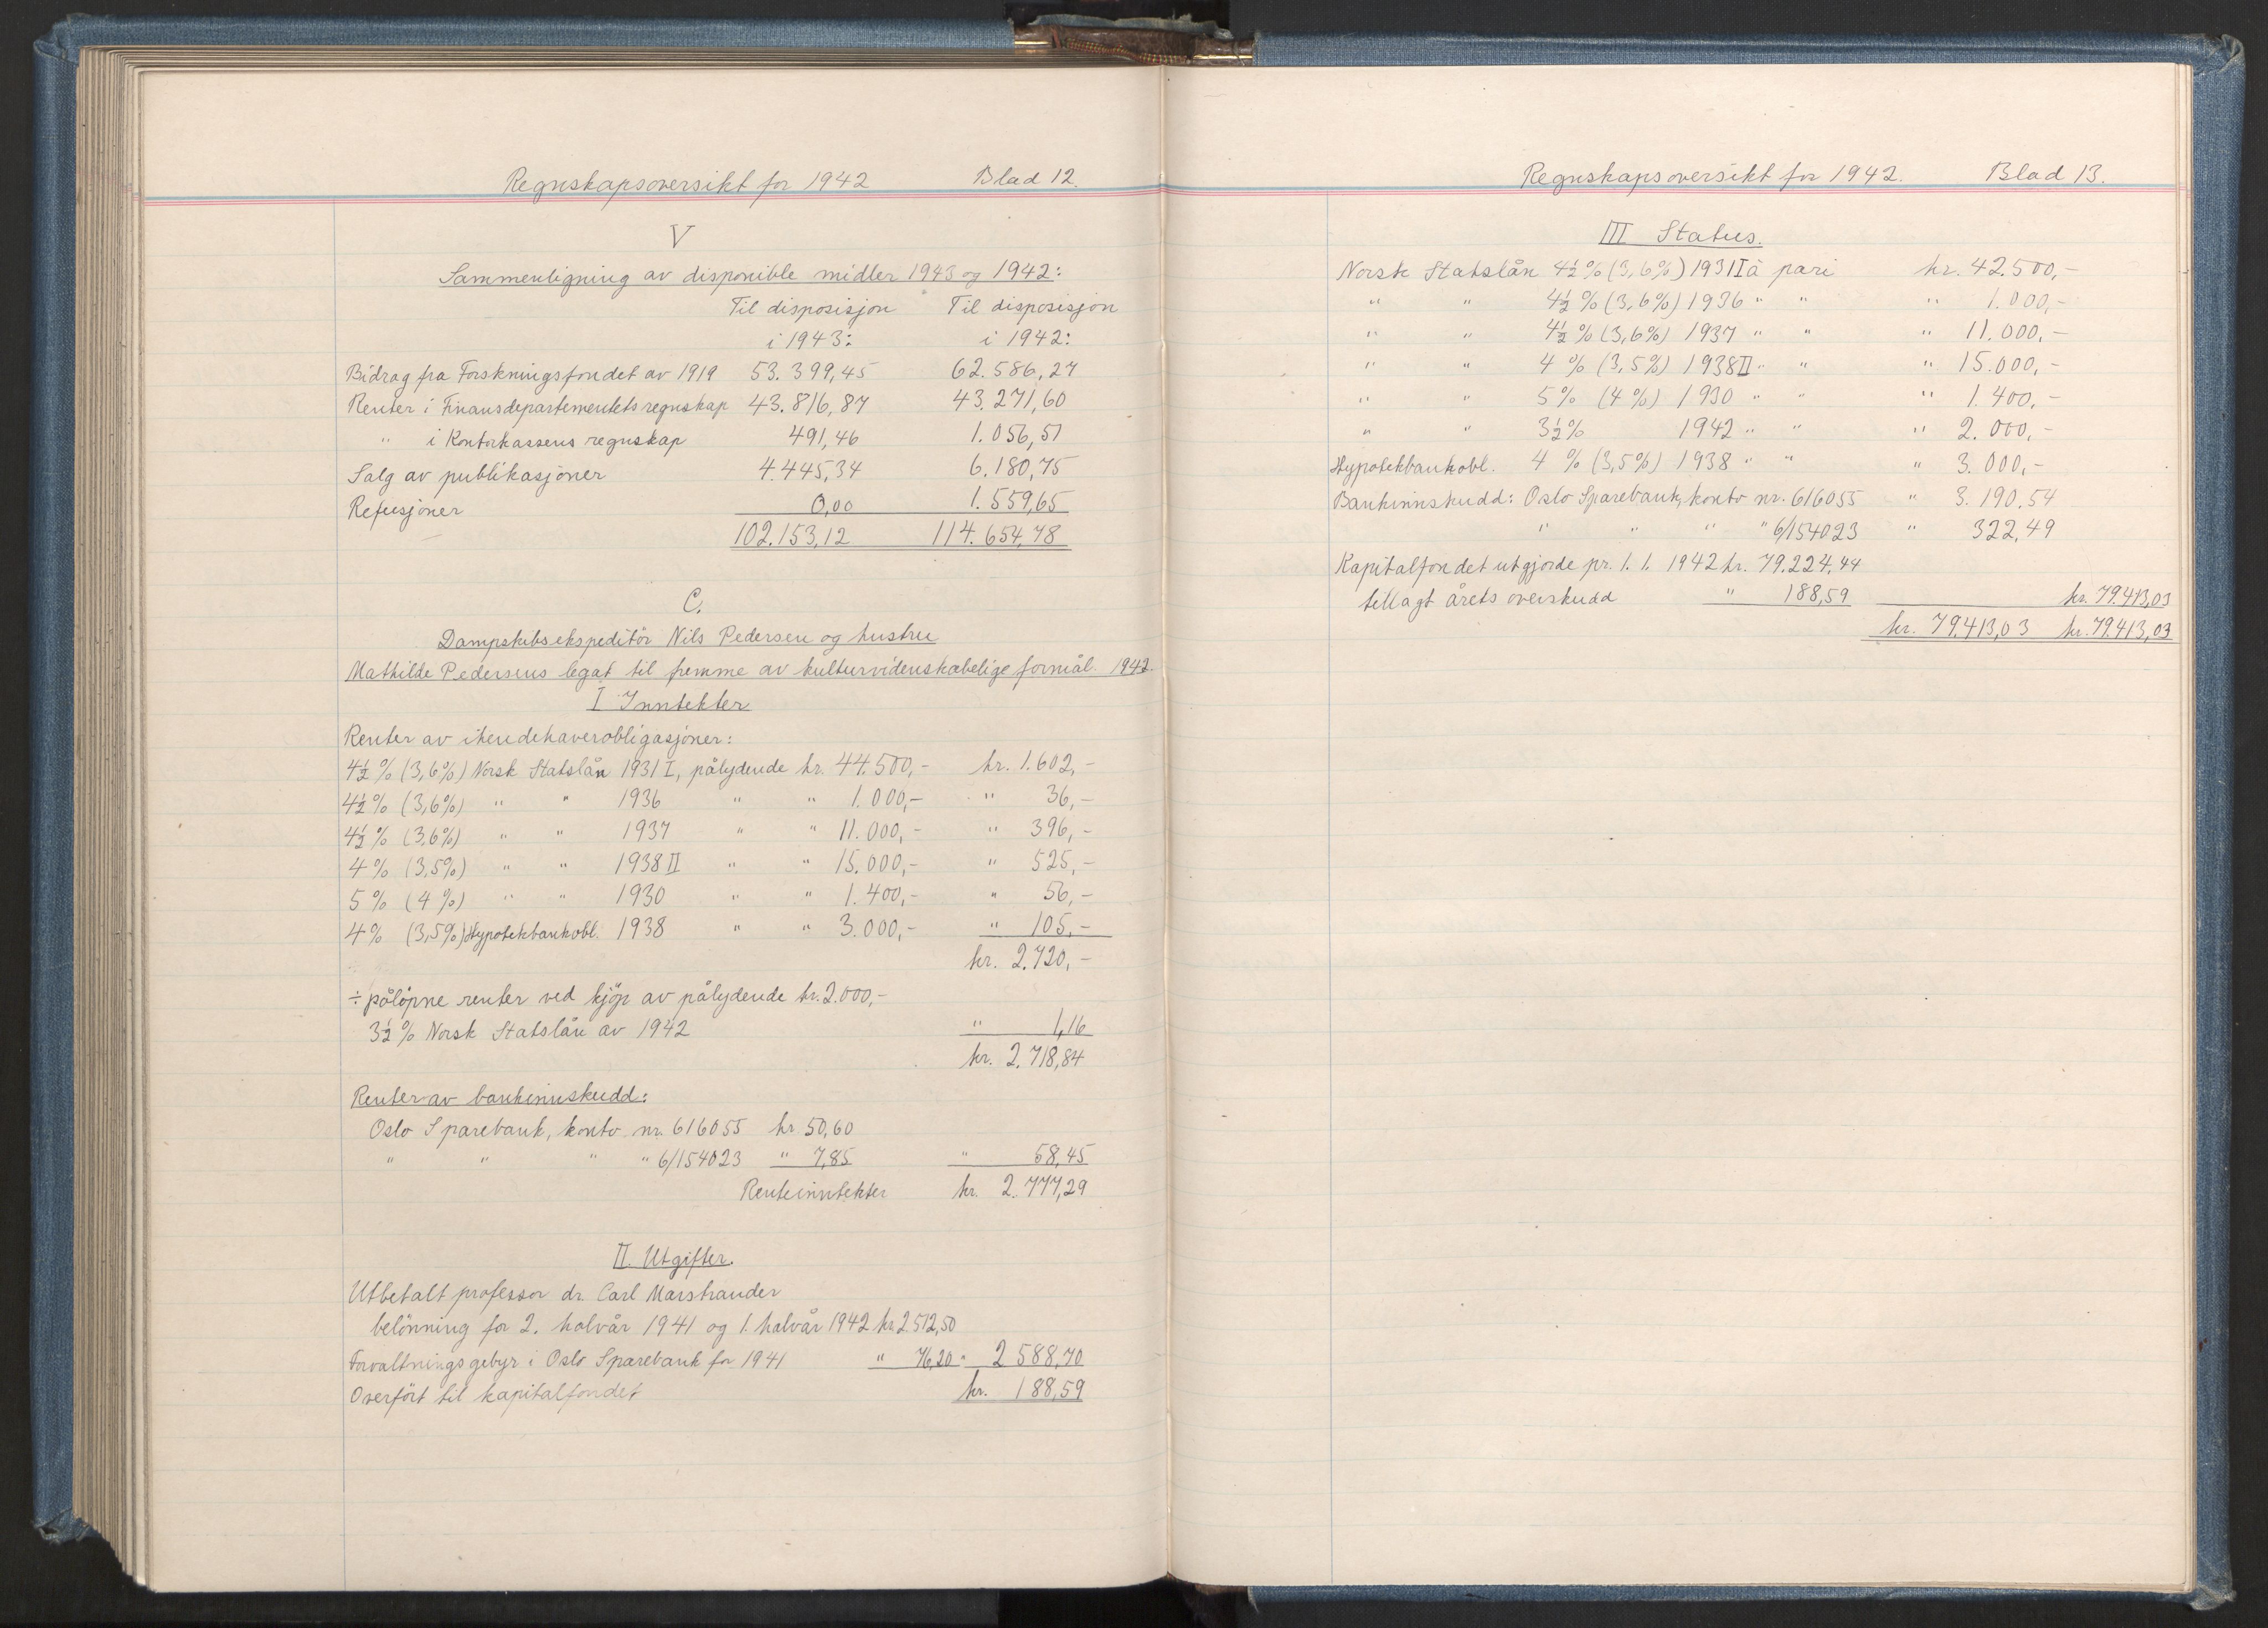 Regnskapsoversikt for 1942 Blad 12.
V
Sammenligning av disponible midler 1943 og 1942:
Til disposisjon Til disposisjon
i 1943: i 1942:
Bidrag fra Forskningsfondet av 1919 53.399,45 62.586,27
Renter i Finansdepartementets regnskap 43.816,87 43.271,60
" i Kontorkassens regnskap 491,46 1.056,51
Salg av publikasjoner 4.445,34 6.180,75
Refusjoner 0,00 1.559,65
102.153,12 114.654,78
C.
Dampskibsekspeditör Nils Pedersen og hustru
Mathilde Pedersens legat til fremme av kulturvidenskabelige formål. 1942.
I Inntekter
Renter av ihendehaverobligasjoner:
4½% (3,6%) Norsk Statslån 1931 I, pålydende kr. 44.500,- kr. 1.602,-
4½% (3,6%) " " 1936 " " 1.000,- " 36,-
4½% (3,6%) " " 1937 " " 11.000,- " 396,-
4% (3,5%) " " 1938 II " " 15.000,- " 525,-
5% (4%) " " 1930 " " 1.400,- " 56,-
4% (3,5%) Hypotekbankobl. 1938 " " 3.000,- " 105,-
kr. 2.720,-
÷ pålöpne renter ved kjöp av pålydende kr. 2.000,-
3½% Norsk Statslån av 1942 " 1,16
kr. 2.718,84
Renter av bankinnskudd:
Oslo Sparebank, konto nr. 616055 kr 50,60
" " " " 6/154023 " 7,85 " 58,45
Renteinntekter kr. 2.777,29
II. Utgifter.
Utbetalt professor dr. Carl Marstrander
belönning for 2. halvår 1941 og 1. halvår 1942 kr. 2.512,50
Forvaltningsgebyr i Oslo Sparebank for 1941 " 76,20 " 2 588,70
Overfört til kapitalfondet kr. 188,59
Regnskapsoversikt for 1942. Blad 13.
III Status.
Norsk Statslån 4½% (3,6%) 1931 I à pari kr. 42.500,-
" " 4½% (3,6%) 1936 " " " 1.000,-
" " 4½% (3,6%) 1937 " " " 11.000,-
" " 4% (3,5%) 1938 II " " " 15.000,-
" " 5% (4%) 1930 " " " 1.400,-
" " 3½% 1942 " " " 2.000,-
Hypotekbankobl. 4% (3,5%) 1938 " " " 3.000,-
Bankinnskudd: Oslo Sparebank, konto nr. 616055 " 3.190.54
" " " " 6/154023 " 322,49
Kapitalfondet utgjorde pr. 1. 1. 1942 kr. 79.224.44
tillagt årets overskudd " 188,59 kr. 79.413,03
kr. 79.413,03 kr. 79.413,03